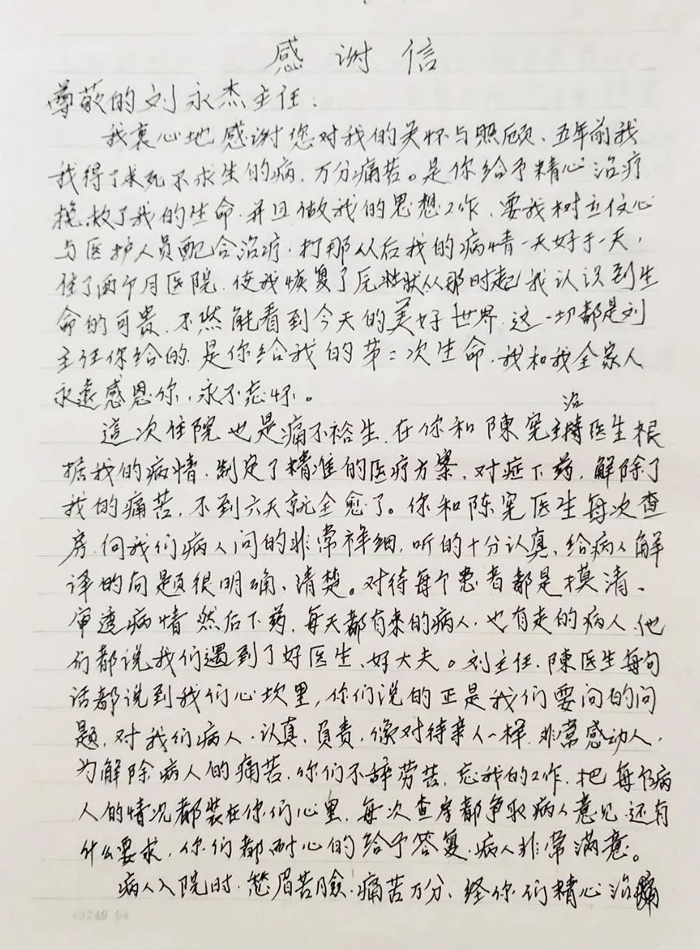 感谢信
尊敬的刘永杰主任:
我衷心地感谢您对我的关怀与照顾、五年前我
我得了求死不求生的病、万分痛苦。是你给予精心治疗
挽救了我的生命、并且做我的思想工作、要我树立信心
与医护人员配合治疗、打那从后我的病情一天好于一天,
住了两个月医院、使我恢复了原状从那时起我认识到生
命的可贵、不然能看到今天的美好世界、这一切都是刘
主任你给的、是你给我的第二次生命、我和我全家人
永远感恩你,永不忘怀。
這次住院也是痛不裕生、在你和陳宪主治医生根
据我的病情、制定了精准的医疗方案,对症下药,解除了
我的痛苦,不到六天就全愈了。你和陈宪医生每次查
房、向我们病人问的非常详细,听的十分认真、给病人解
译的问题很明确、清楚。对待每个患者都是摸清、
审透病情然后下药、每天都有来的病人、也有走的病人、他
们都说我们遇到了好医生、好大夫。刘主任、陳医生每句
话都说到我们心坎里,你们说的正是我们要问的问
题,对我们病人、认真、負责,像对待亲人一样、非常感动人,
为解除病人的痛苦、你们不辞劳苦、忘我的工作、把每个病
人的情况都装在你们心里、每次查房都争取病人意见、还有
什么要求,你们都耐心的给予答复、病人非常满意。
病人入院时、愁眉苦臉、痛苦万分、经你们精心治
49249 84